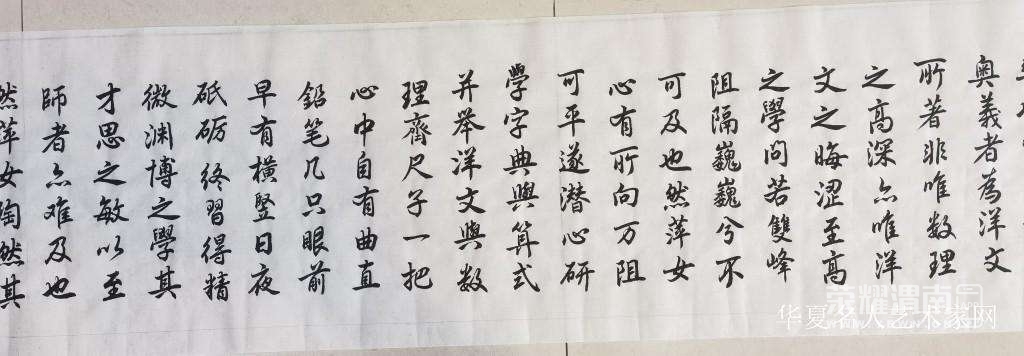 奥義者為洋文
所著非唯数理
之高深亦唯洋
文之晦涩至高
之學问若雙峰
阻隔巍巍兮不
可及也然萍女
心有所向万阻
可平遂潜心研
學字典與算式
并举洋文與数
理齊尺子一把
心中自有曲直
鉛笔几只眼前
早有横竖日夜
砥砺终習得精
微渊博之學其
才思之敏以至
師者亦难及也
然萍女陶然其
荣耀渭南网
华夏名人艺术家网